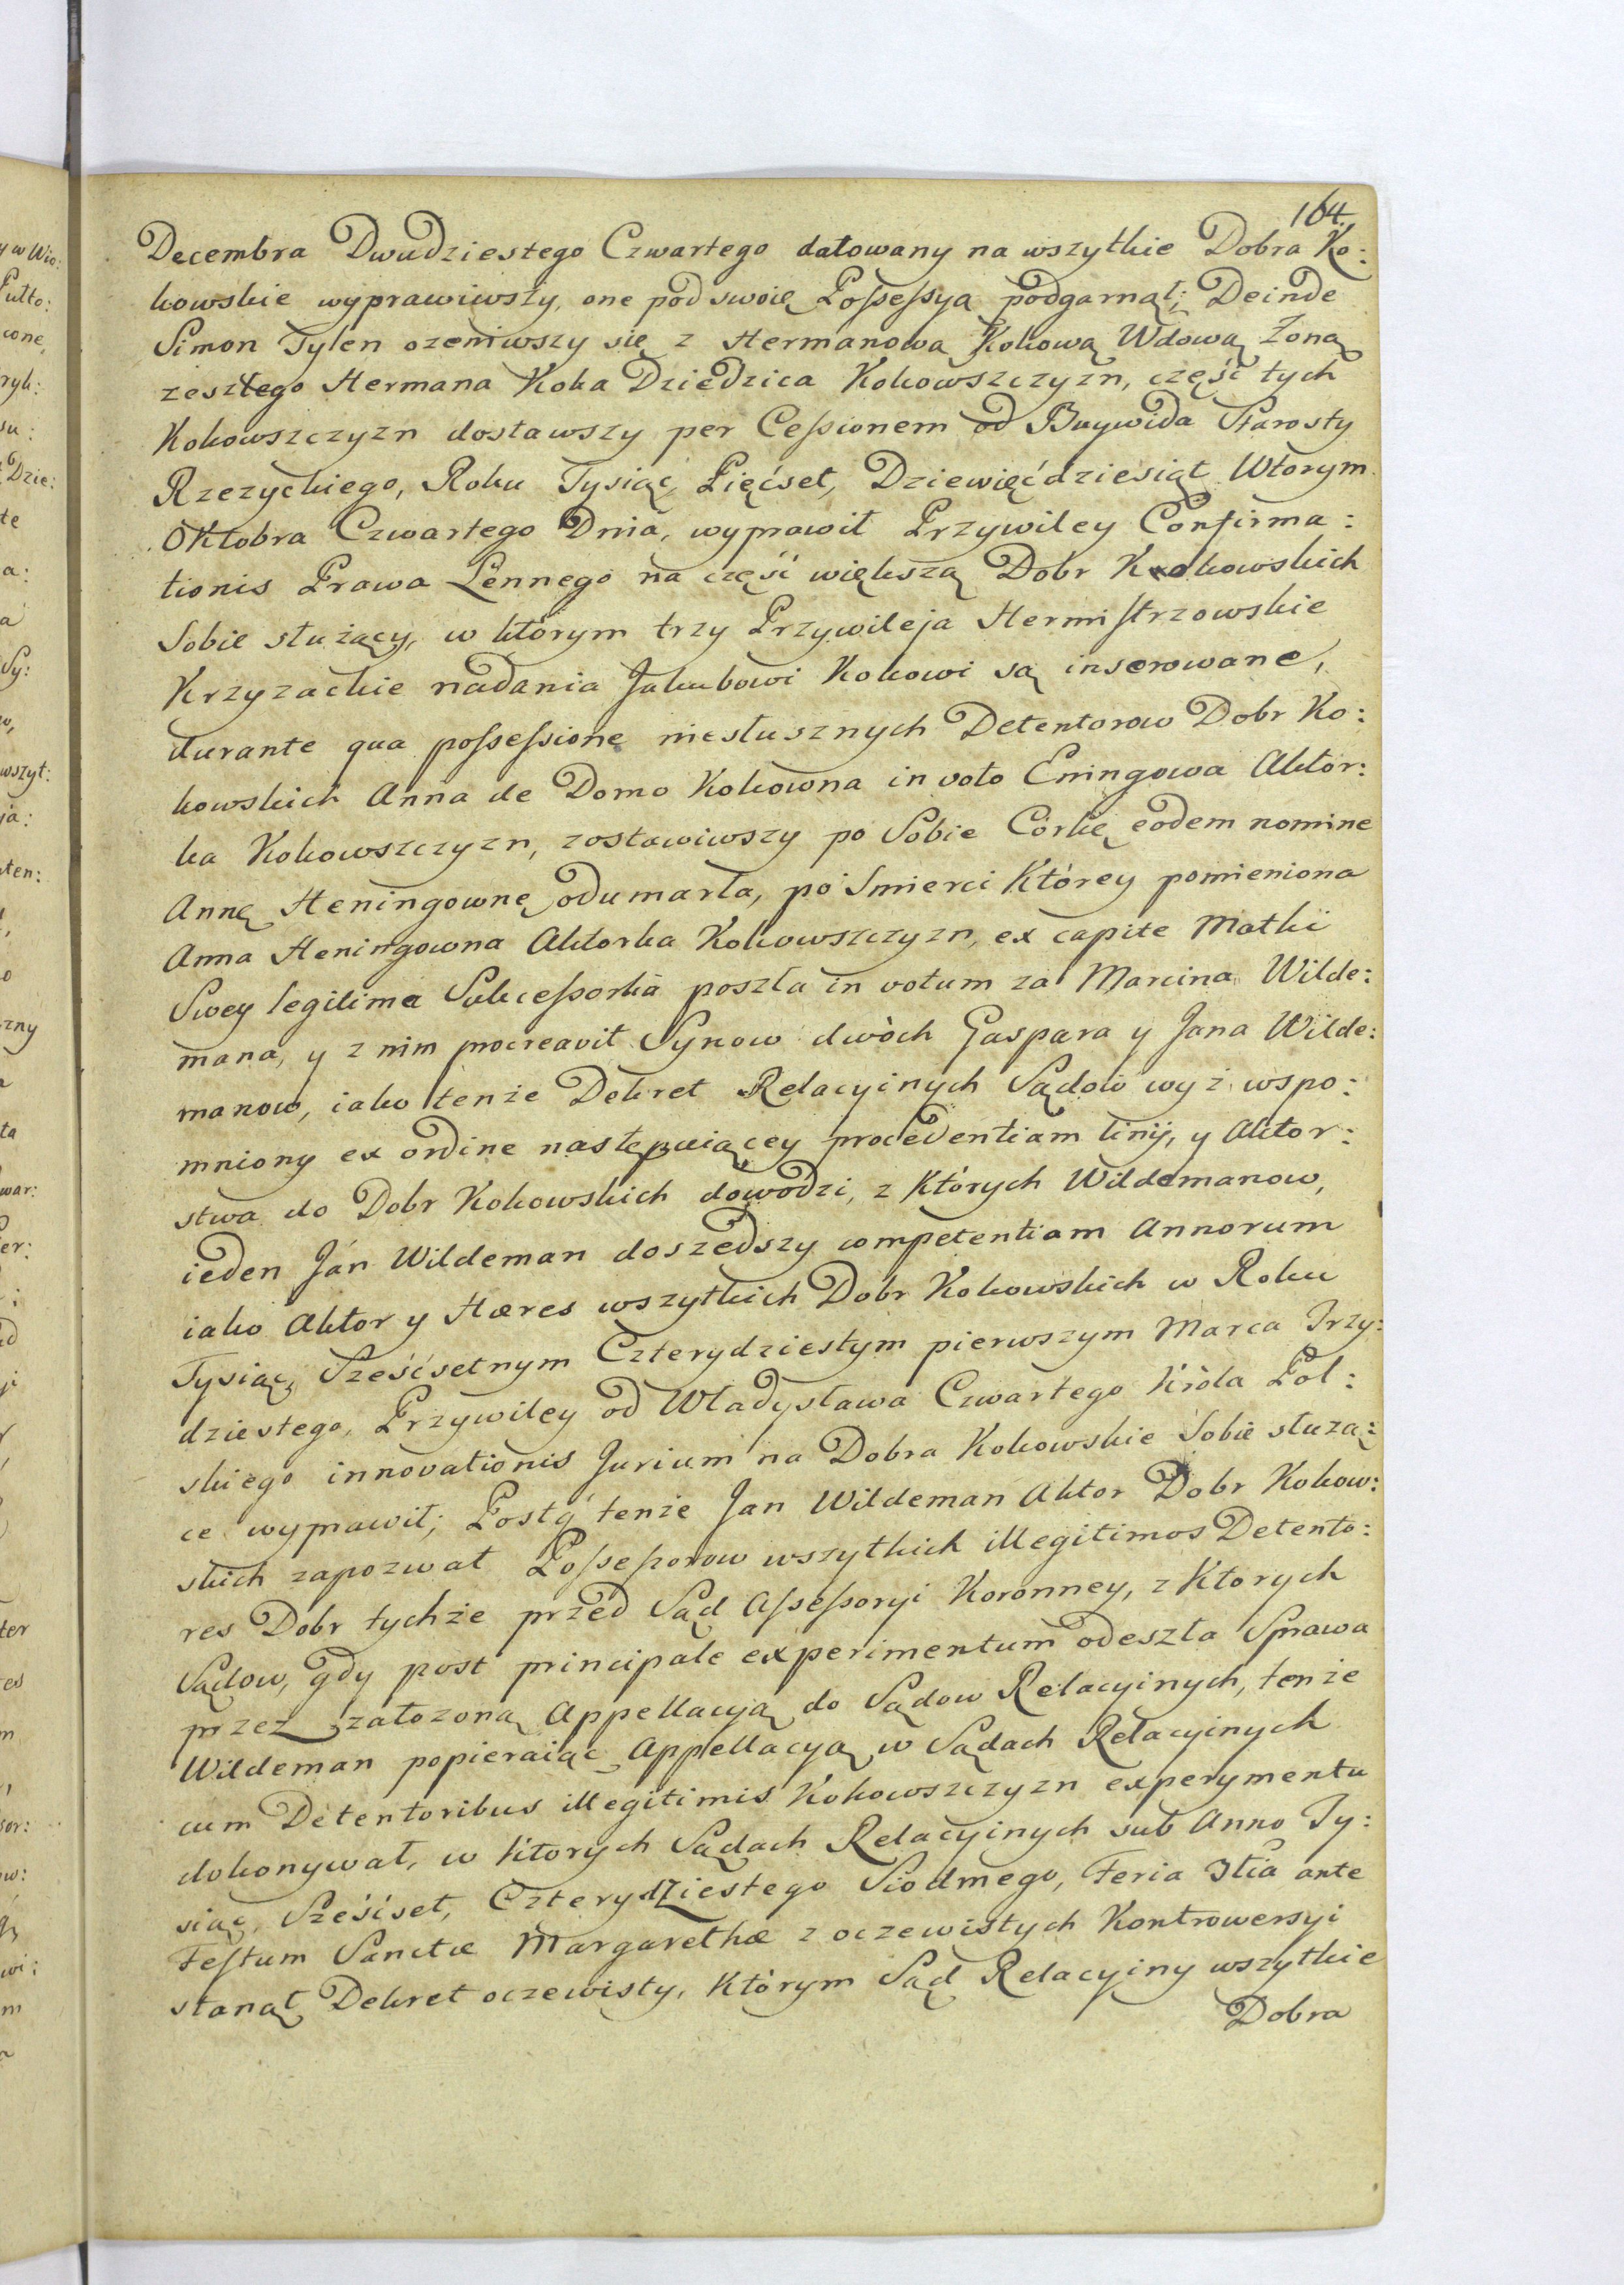 164.
Decembra Dwudziestego Czwartego datowany na wszytkie Dobra Ko:
kowskie wyprawiwszy, one pod swoię Possessyą podgarnął; Deinde
Simon Tylen ozeniwszy się z Hermanową Kokową Wdową Zoną
zeszłego Hermana Koka Dziedzica Kokowszczyzn, część tych
Kokowszczyzn dostawszy per Cessionem od Buywida Starosty
Rzezyckiego, Roku Tysiąc, Pięćset, Dziewięćdziesiąt Wtorym
Oktobra Czwartego Dnia, wyprawił Przywiley Confirma:
tionis Prawa Lennego na część większą Dobr Kokowskich
Sobie służący, w którym trzy Przywileja Hermistrzowskie
Krzyzackie nadania Jakubowi Kokowi są inserowane,
durante qua possessione niesłusznych Detentorow Dobr Ko:
kowskich Anna de Domo Kokowna in voto Eningowa Aktor:
ka Kokowszczyzn, zostawiwszy po Sobie Córkę eodem nomine
Annę Heningownę odumarła, po Smierci Którey pomieniona
Anna Heningowna Aktorka Kokowszczyzn, ex capite Matki
Swey legitima Sukcessorka poszła in votum za Marcina Wilde:
mana, y z nim procreavit Synow dwòch Gaspara y Jana Wilde:
manow, iako tenże Dekret Relacyinych Sądow wyż wspo:
mniony ex ordine następuiącey procedentiam linij, y Aktor:
stwa do Dobr Kokowskich dowodzi, z Których Wildemanow,
ieden Jan Wildeman doszedszy competentiam Annorum
iako Aktor y Hæres wszytkich Dobr Kokowskich w Roku
Tysiąc, Sześćsetnym Czterydziestym pierwszym Marca Trzy:
dziestego, Przywiley od Władysława Czwartego Króla Pol:
skiego innovationis Jurium na Dobra Kokowskie Sobie słuzą:
ce wyprawił; Postą tenże Jan Wildeman Aktor Dobr Kokow:
skich zapozwał Possessorow wszytkich illegitimos Detento:
res Dobr tychże przed Sąd Assessoryi Koronney, z Ktorych
Sądow, gdy post principale experimentum odeszła Sprawa
przez załozoną Appellacyą do Sądow Relacyinych, tenże
Wildeman popieraiąc Appellacyą w Sądach Relacyinych
cum Detentoribus illegitimis Kokowszczyzn experymentu
dokonywał, w ktorych Sądach Relacyinych sub Anno Ty:
siąc, Sześćset, Czterydziestego Siodmego, Feria 3tia ante
Festum Sanctæ Margarethæ z oczewistych Kontrowersyi
stanął Dekret oczewisty, Którym Sąd Relacyiny wszytkie
Dobra